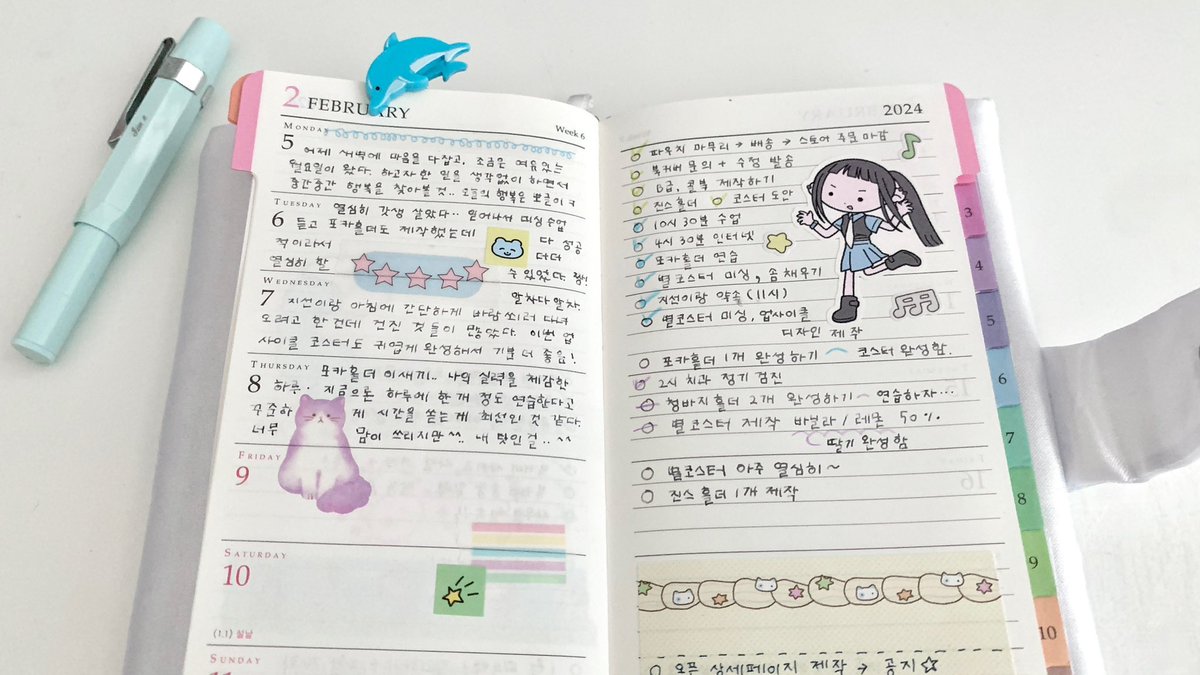 2 FEBRUARY
Week 6
MONDAY
5 어제 새벽에 마음을 다잡고, 조금은 여유있는
월요일이 왔다. 하고자 한 일을 생각없이 하면서
중간중간 행복을 찾아볼 것.. 오늘의 행복은 뽀글이ㅋ
TUESDAY
6 열심히 갓생 살았다.. 일어나서 미싱수업
듣고 포카홀더도 제작했는데 다 성공
적이라서 다더
열심히 할 수 있었다. 짱!
알차다알차.
WEDNESDAY
7 지선이랑 아침에 간단하게 바람 쐬러 다녀
오려고 한건데 건진 것들이 많았다. 이번 업
사이클 코스터도 귀엽게 완성해서 기분 더 좋음!
THURSDAY
8 포카홀더 이새끼.. 나의 실력을 체감한
하루. 지금으론 하루에 한 개 정도 연습한다고
꾸준하 제 시간을 쏟는게 최선인 것 같다.
너무 맘이 쓰리지만^^.. 내 탓인걸..^^
FRIDAY
9
SATURDAY
10
(1.1) 설날
SUNDAY
11
2024
파우치 마무리 → 배송 → 스토어 주문 마감
북커버 문의 + 수정 발송
B급, 콜북 제작하기
진스홀더 코스터 도안
10시 30분 수업
4시 30분 인터넷
포카홀더 연습
별코스터 미싱, 솜 채우기
지선이랑 약속 (11시)
별코스터 미싱, 업사이클
디자인 제작
포카홀더 1개 완성하기 코스터 완성함.
2시 치과 정기 검진
청바지홀더 2개 완성하기 연습하자…
별코스터 제작 바닐라 / 레몬 50%
딸기 완성함
별코스터 아주 열심히~
진스 홀더 1개 제작
오픈 상세페이지 제작 → 공지☆
3
4
5
6
7
8
9
10